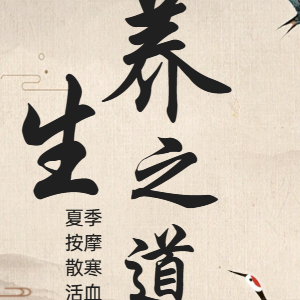 养
生
之
道
夏季
按摩
散寒
活血